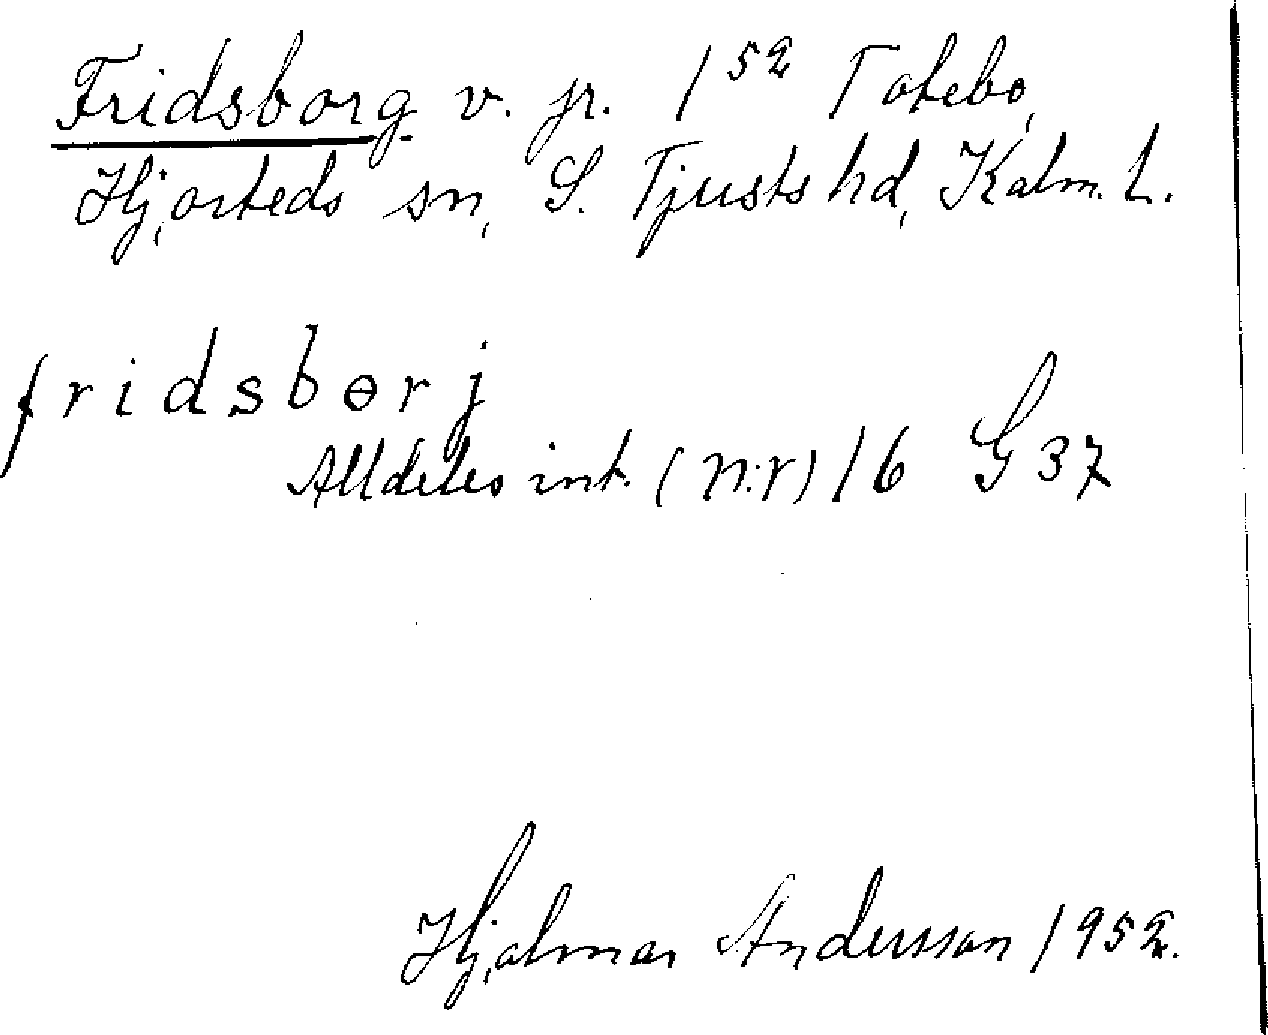 Fridsborg v. fr. 1⁵² Totebo,
Hjorteds sn, S. Tjusts hd, Kalm. L.
fridsbɵrj
Alldeles int. (n:r) 16 G 37
Hjalmar Andersson 1952.